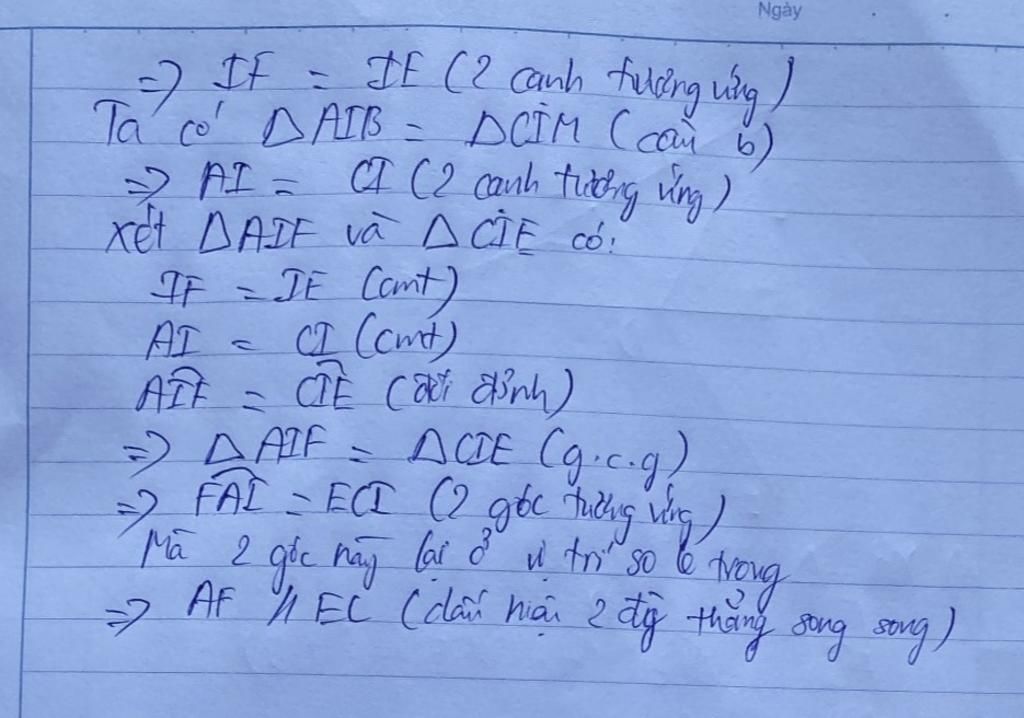 Ngày
=> IF = IE (2 cạnh tương ứng)
Ta có △AIB = △CIM (câu b)
=> AI = CI (2 cạnh tương ứng)
xét △AIF và △CIE có:
IF = IE (cmt)
AI = CI (cmt)
AIF = CIE (đối đỉnh)
=> △AIF = △CIE (g.c.g)
=> FAI = ECI (2 góc tương ứng)
Mà 2 góc này lại ở vị trí so le trong
=> AF // EC (dấu hiệu 2 đg thẳng song song)